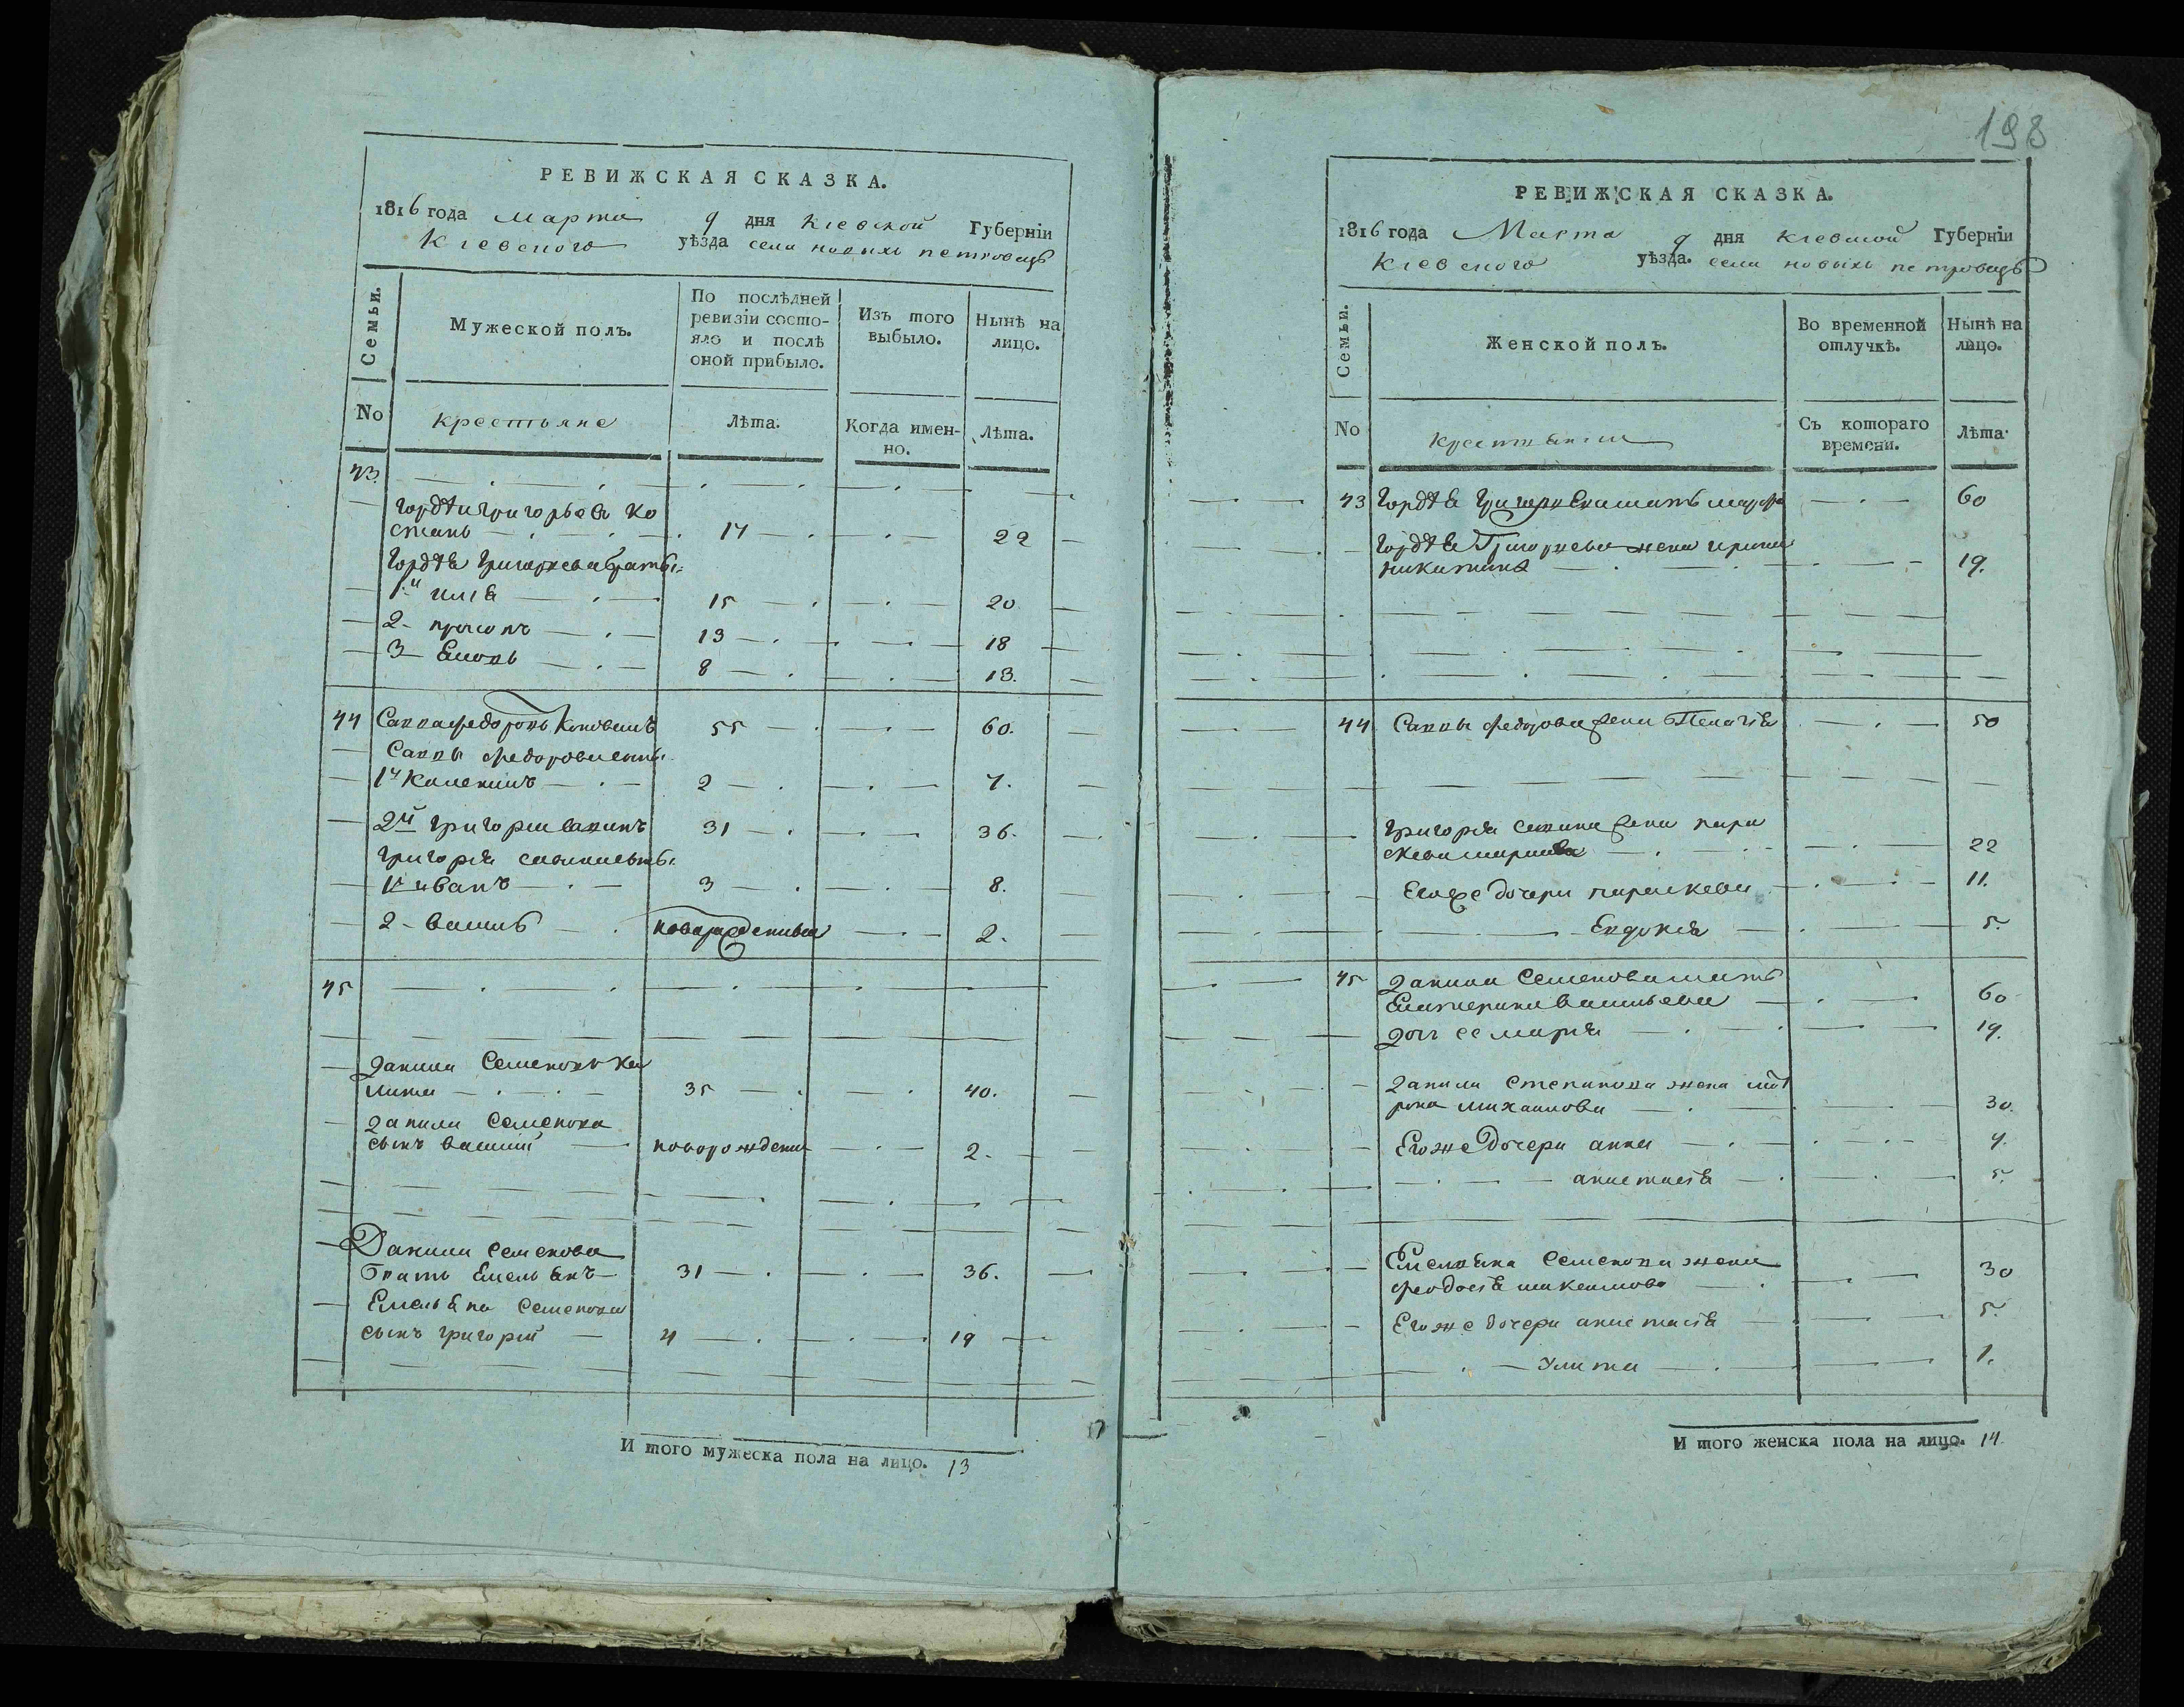 198
РЕВИЖСКАЯ СКАЗКА.
1816 года Марта 9 дня Киевской Губерніи
Киевского уѣзда села новыхъ петровецъ
Семьи.
Мужеской полъ.
По послѣдней ревизіи состо-
яло и послѣ
оной прибыло.
Изъ того
выбыло.
Нынѣ на
лицо.
No
крестьяне
Лѣта.
Когда имен-
но.
Лѣта.
43.
Гордѣи Григорьевъ Ко
стань 17 22
Гордѣя Григорьева братья
1й илія 15 20
2- прокопъ 13 18
3- 8 13.
44 Савва федоровъ 55 60.
Саввы федорова сыны
1й 2 7.
2й григории савинъ 31 36.
григорія савина сыны
1й иванъ 3 8.
2- васили новорожденны 2.
45
Данила Семеновъ Ка
лита 35 40.
Данила Семенова
сынъ василий новорожденны 2.
Данила Семенова
братъ Емельянъ 31 36.
Емельяна Семенова
сынъ григорий 4 19
И того мужеска пола на лицо. 13
РЕВИЖСКАЯ СКАЗКА.
1816 года Марта 9 дня Киевской Губерніи
Киевского уѣзда. села новыхъ петровецъ
Семьи.
Женской полъ.
Во временной
отлучкѣ.
Нынѣ на
лицо.
No
крестьянки
Съ котораго
времени.
Лѣта.
43 Гордѣя Григорьева мать 60
Гордѣя Григорьева жена ирина
никитина 19.
44 Саввы федорова жена Пелагія 50
григорія савина жена пара
скева 22
Егоже дочери параскева 11.
Евдокія 5.
45 Данила Семенова мать
Екатерина васильева 60
дочь ее марія 19.
Данила Степанова жена мат
рона михаилова 30.
Егоже дочери анна 7.
анастасія 5.
Емельяна Семенова жена
феодосія максимова 30
Егоже дочери анастасія 5.
Улита 1.
И того женска пола на лицо. 14.